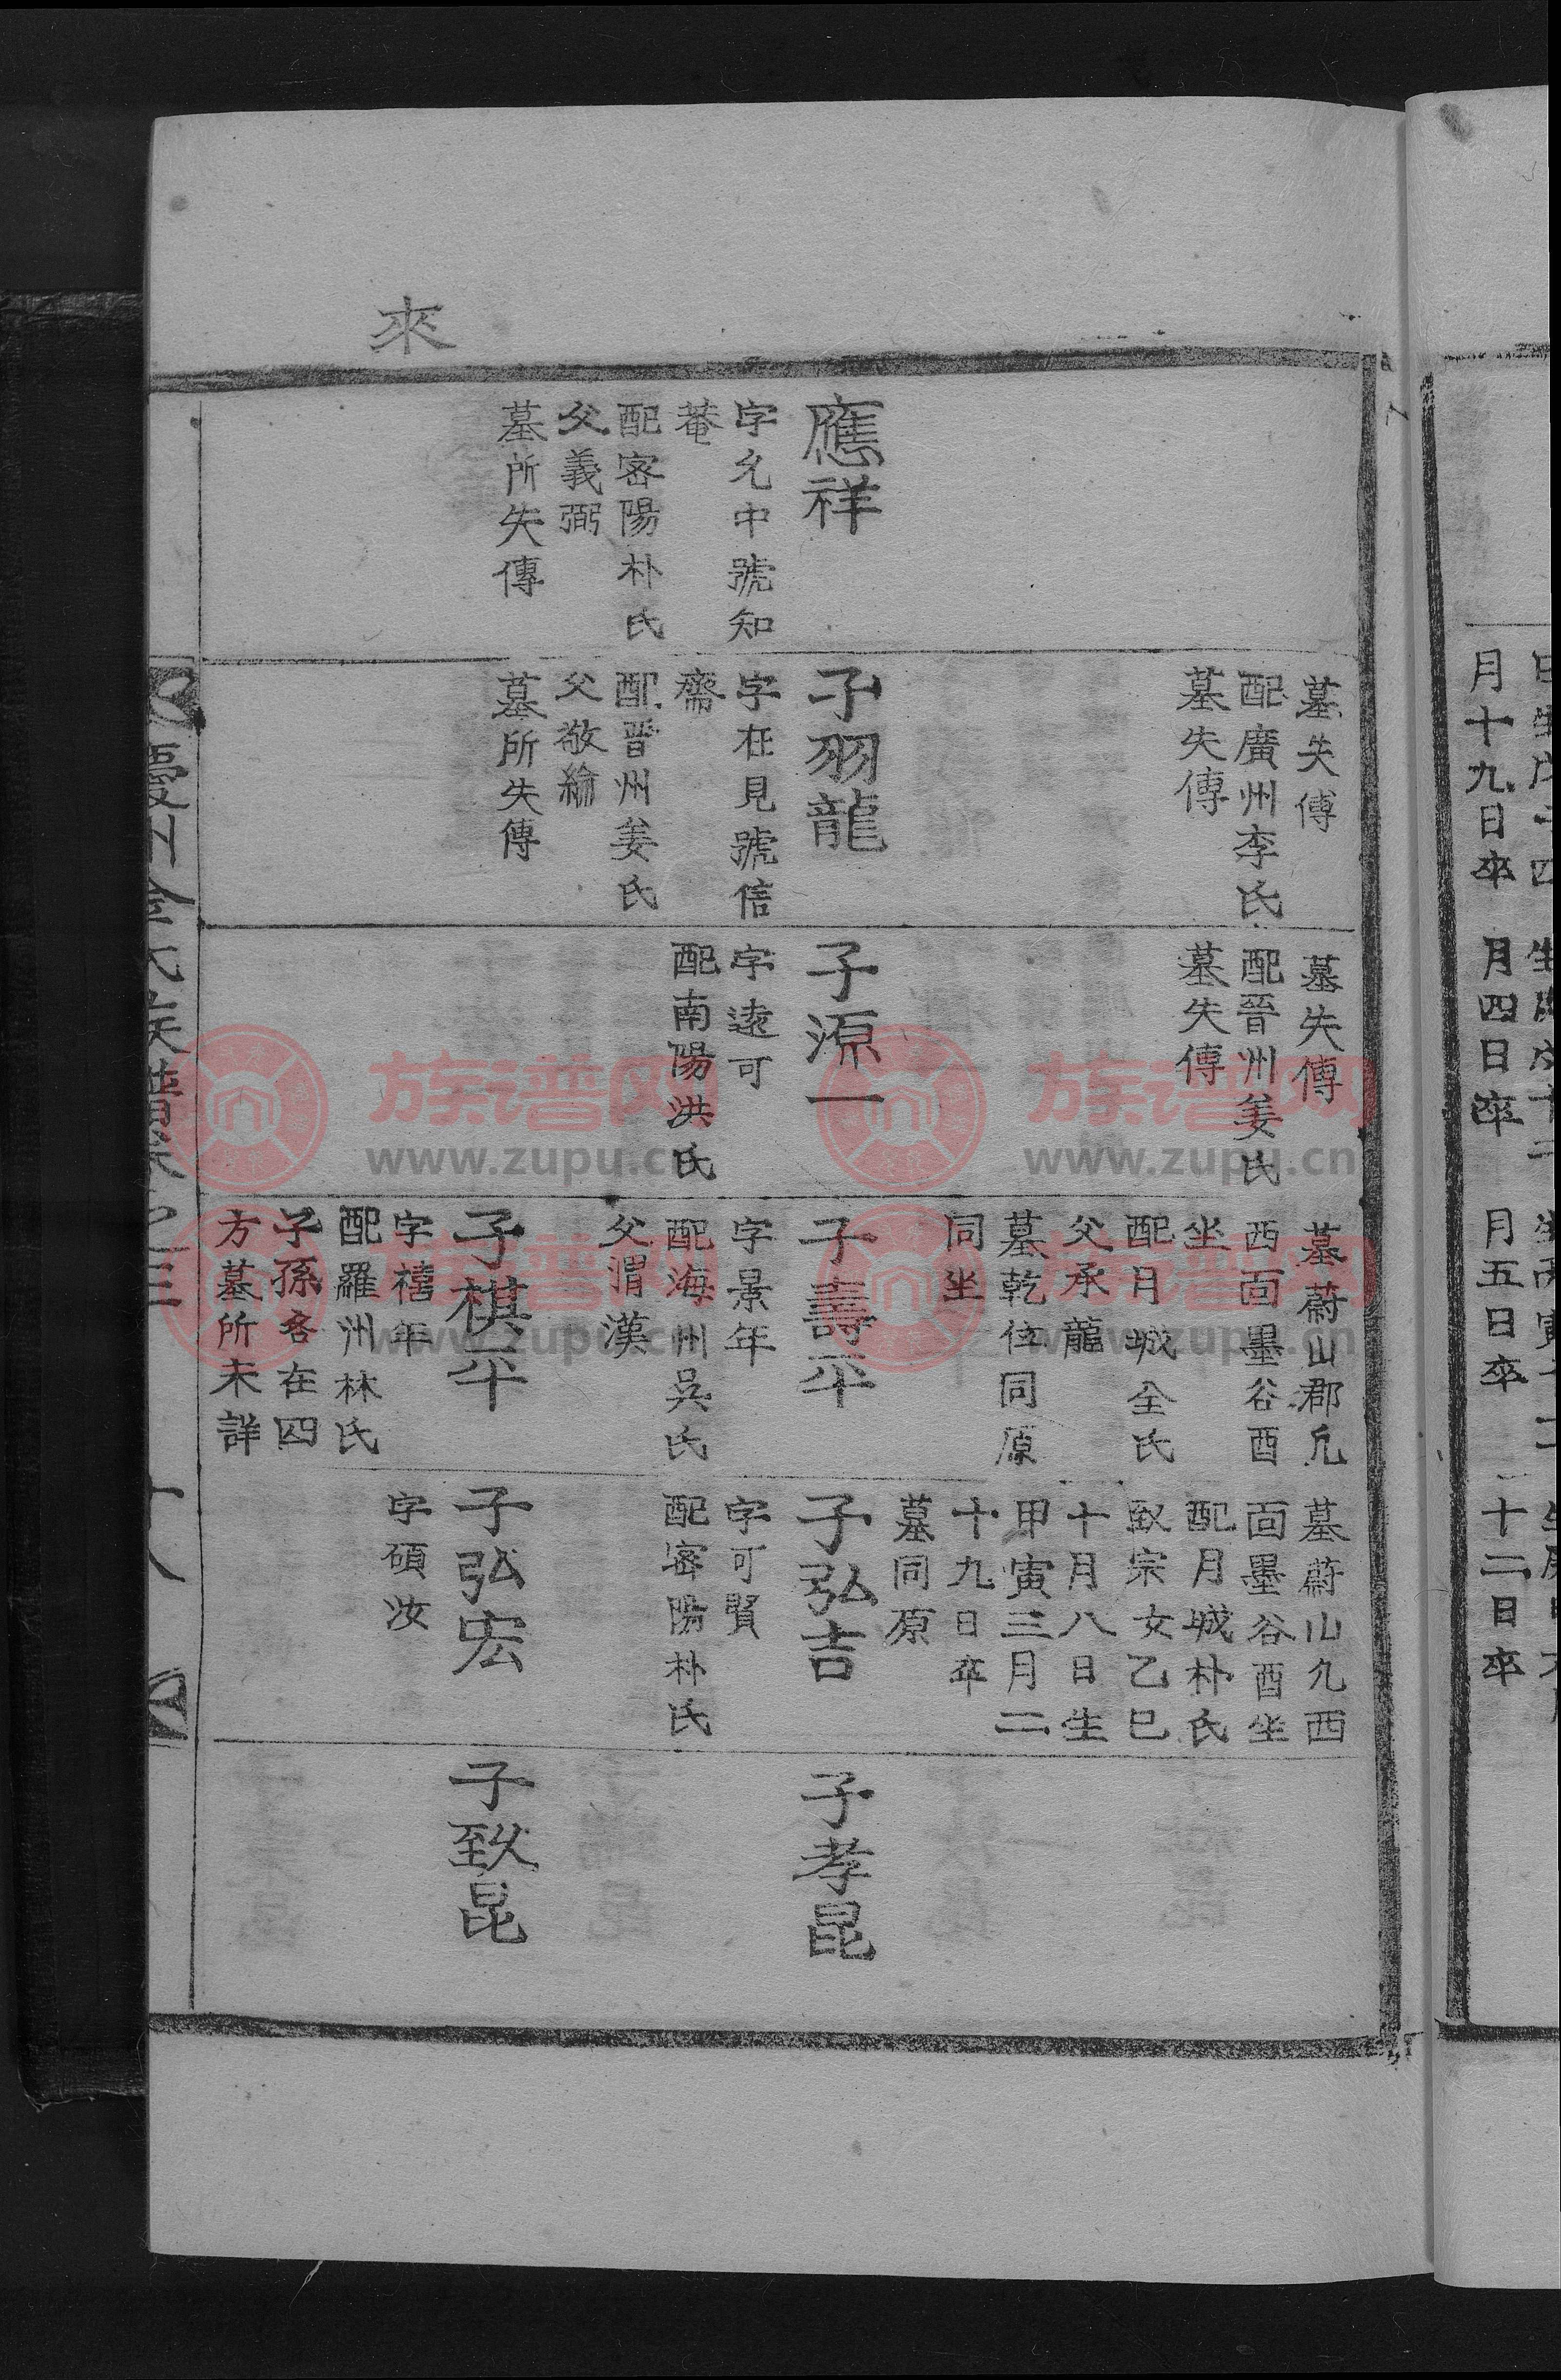 月十九日卒
月四日卒
月五日卒
十二日卒
來
應祥
字允中號知
菴
配密陽朴氏
父義弼
墓所失傳
墓失傳
配廣州李氏
墓失傳
子羽龍
字在見號信
齋
配晋州姜氏
父敬綸
墓所失傳
墓失傳
配晉州姜氏
墓失傳
子源一
字遠可
配南陽洪氏
墓蔚山郡凢
西面墨谷酉
坐
配月城全氏
父承龍
墓乾位同原
同坐
子壽平
字景年
配海州吳氏
父渭漢
子棋平
字禧年
配羅州林氏
子孫各在四
方墓所未詳
墓蔚山凢西
面墨谷酉坐
配月城朴氏
致宗女乙巳
十月八日生
甲寅三月二
十九日卒
墓同原
子弘吉
字可賢
配密陽朴氏
子弘宏
字碩汝
子孝昆
子致昆
慶州金氏族譜卷之三
十八
族谱网
www.zupu.cn
族谱网
www.zupu.cn
族谱网
www.zupu.cn
族谱网
www.zupu.cn